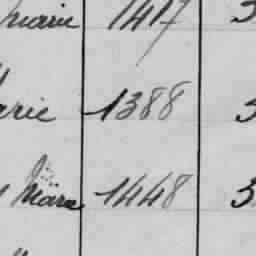 marie 1417 3
arie 1388 3
Marie 1448 3